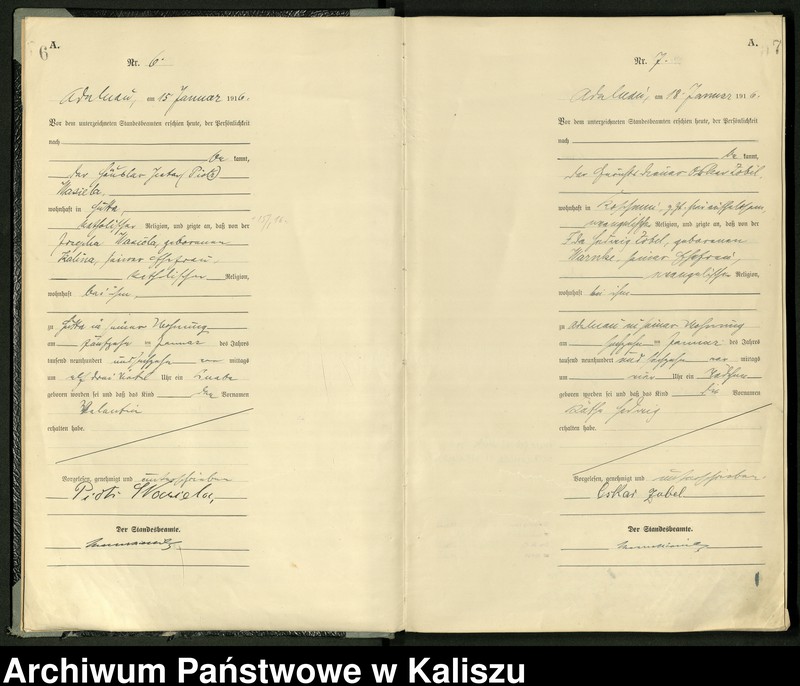 6
A.
Nr. 6.
Adelnau, am 15 Januar 1916.
Vor dem unterzeichneten Standesbeamten erschien heute, der Persönlichkeit
nach
be kannt,
der Häusler
Wasiela
wohnhaft in Hutta,
katholischer Religion, und zeigte an, daß von der
Josepha Wasiela, geborenen
Kalina, seiner Ehefrau
katholischer Religion,
wohnhaft bei ihm,
zu Hutta in seiner Wohnung
am fünfzehn ten Januar des Jahres
tausend neunhundert und sechzehn vor mittags
um elf drei viertel Uhr ein Knabe
geboren worden sei und daß das Kind den Vornamen
Valentin
erhalten habe.
Vorgelesen, genehmigt und unterschrieben
Piotr Wasiela,
Der Standesbeamte.
A.
7
Nr. 7.
Adelnau, am 18. Januar 1916.
Vor dem unterzeichneten Standesbeamten erschien heute, der Persönlichkeit
nach
be kannt,
der Oskar Zobel
wohnhaft in
evangelischer Religion, und zeigte an, daß von der
Ida Hedwig Zobel, geborenen
Warnke, seiner Ehefrau,
evangelischer Religion,
wohnhaft bei ihm
zu Adelnau in seiner Wohnung
am ten Januar des Jahres
tausend neunhundert und sechzehn vor mittags
um vier Uhr ein Mädchen
geboren worden sei und daß das Kind die Vornamen
Käthe Hedwig
erhalten habe.
Vorgelesen, genehmigt und unterschrieben.
Oskar Zobel
Der Standesbeamte.
Archiwum Państwowe w Kaliszu